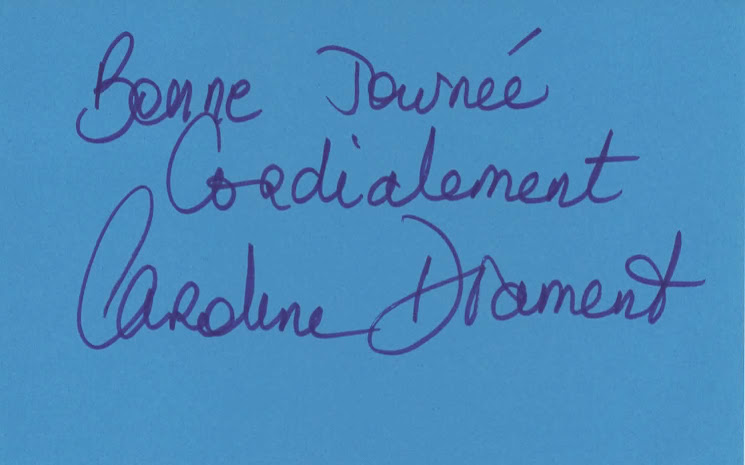 Bonne Journée
Cordialement
Caroline Diament